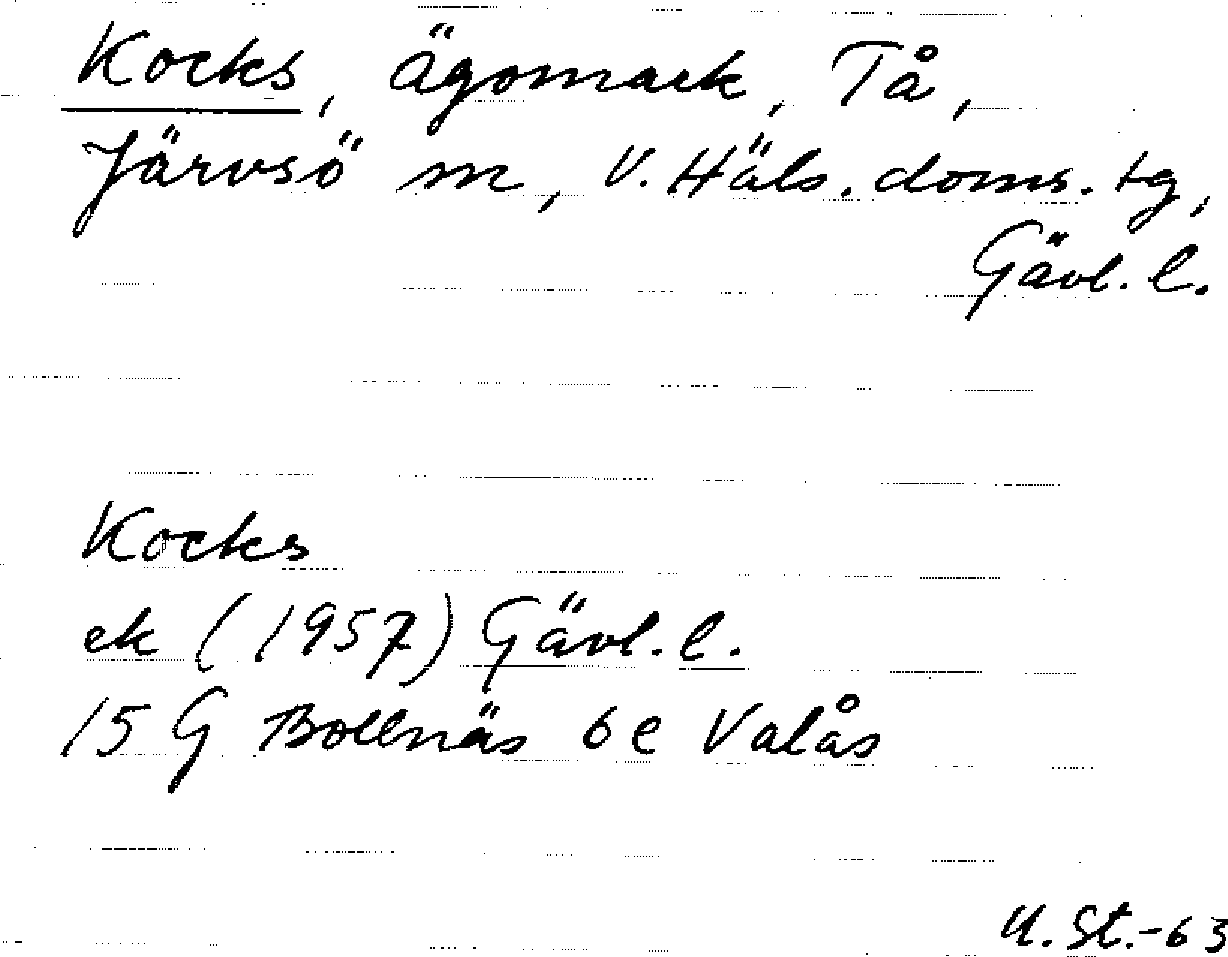 Kocks, ägomark, Tå,
Järvsö sn, V. Häls. doms. tg,
Gävl. l.
Kocks
ek (1957) Gävl. l.
15 G Bollnäs 6e Valås
U. St.-63